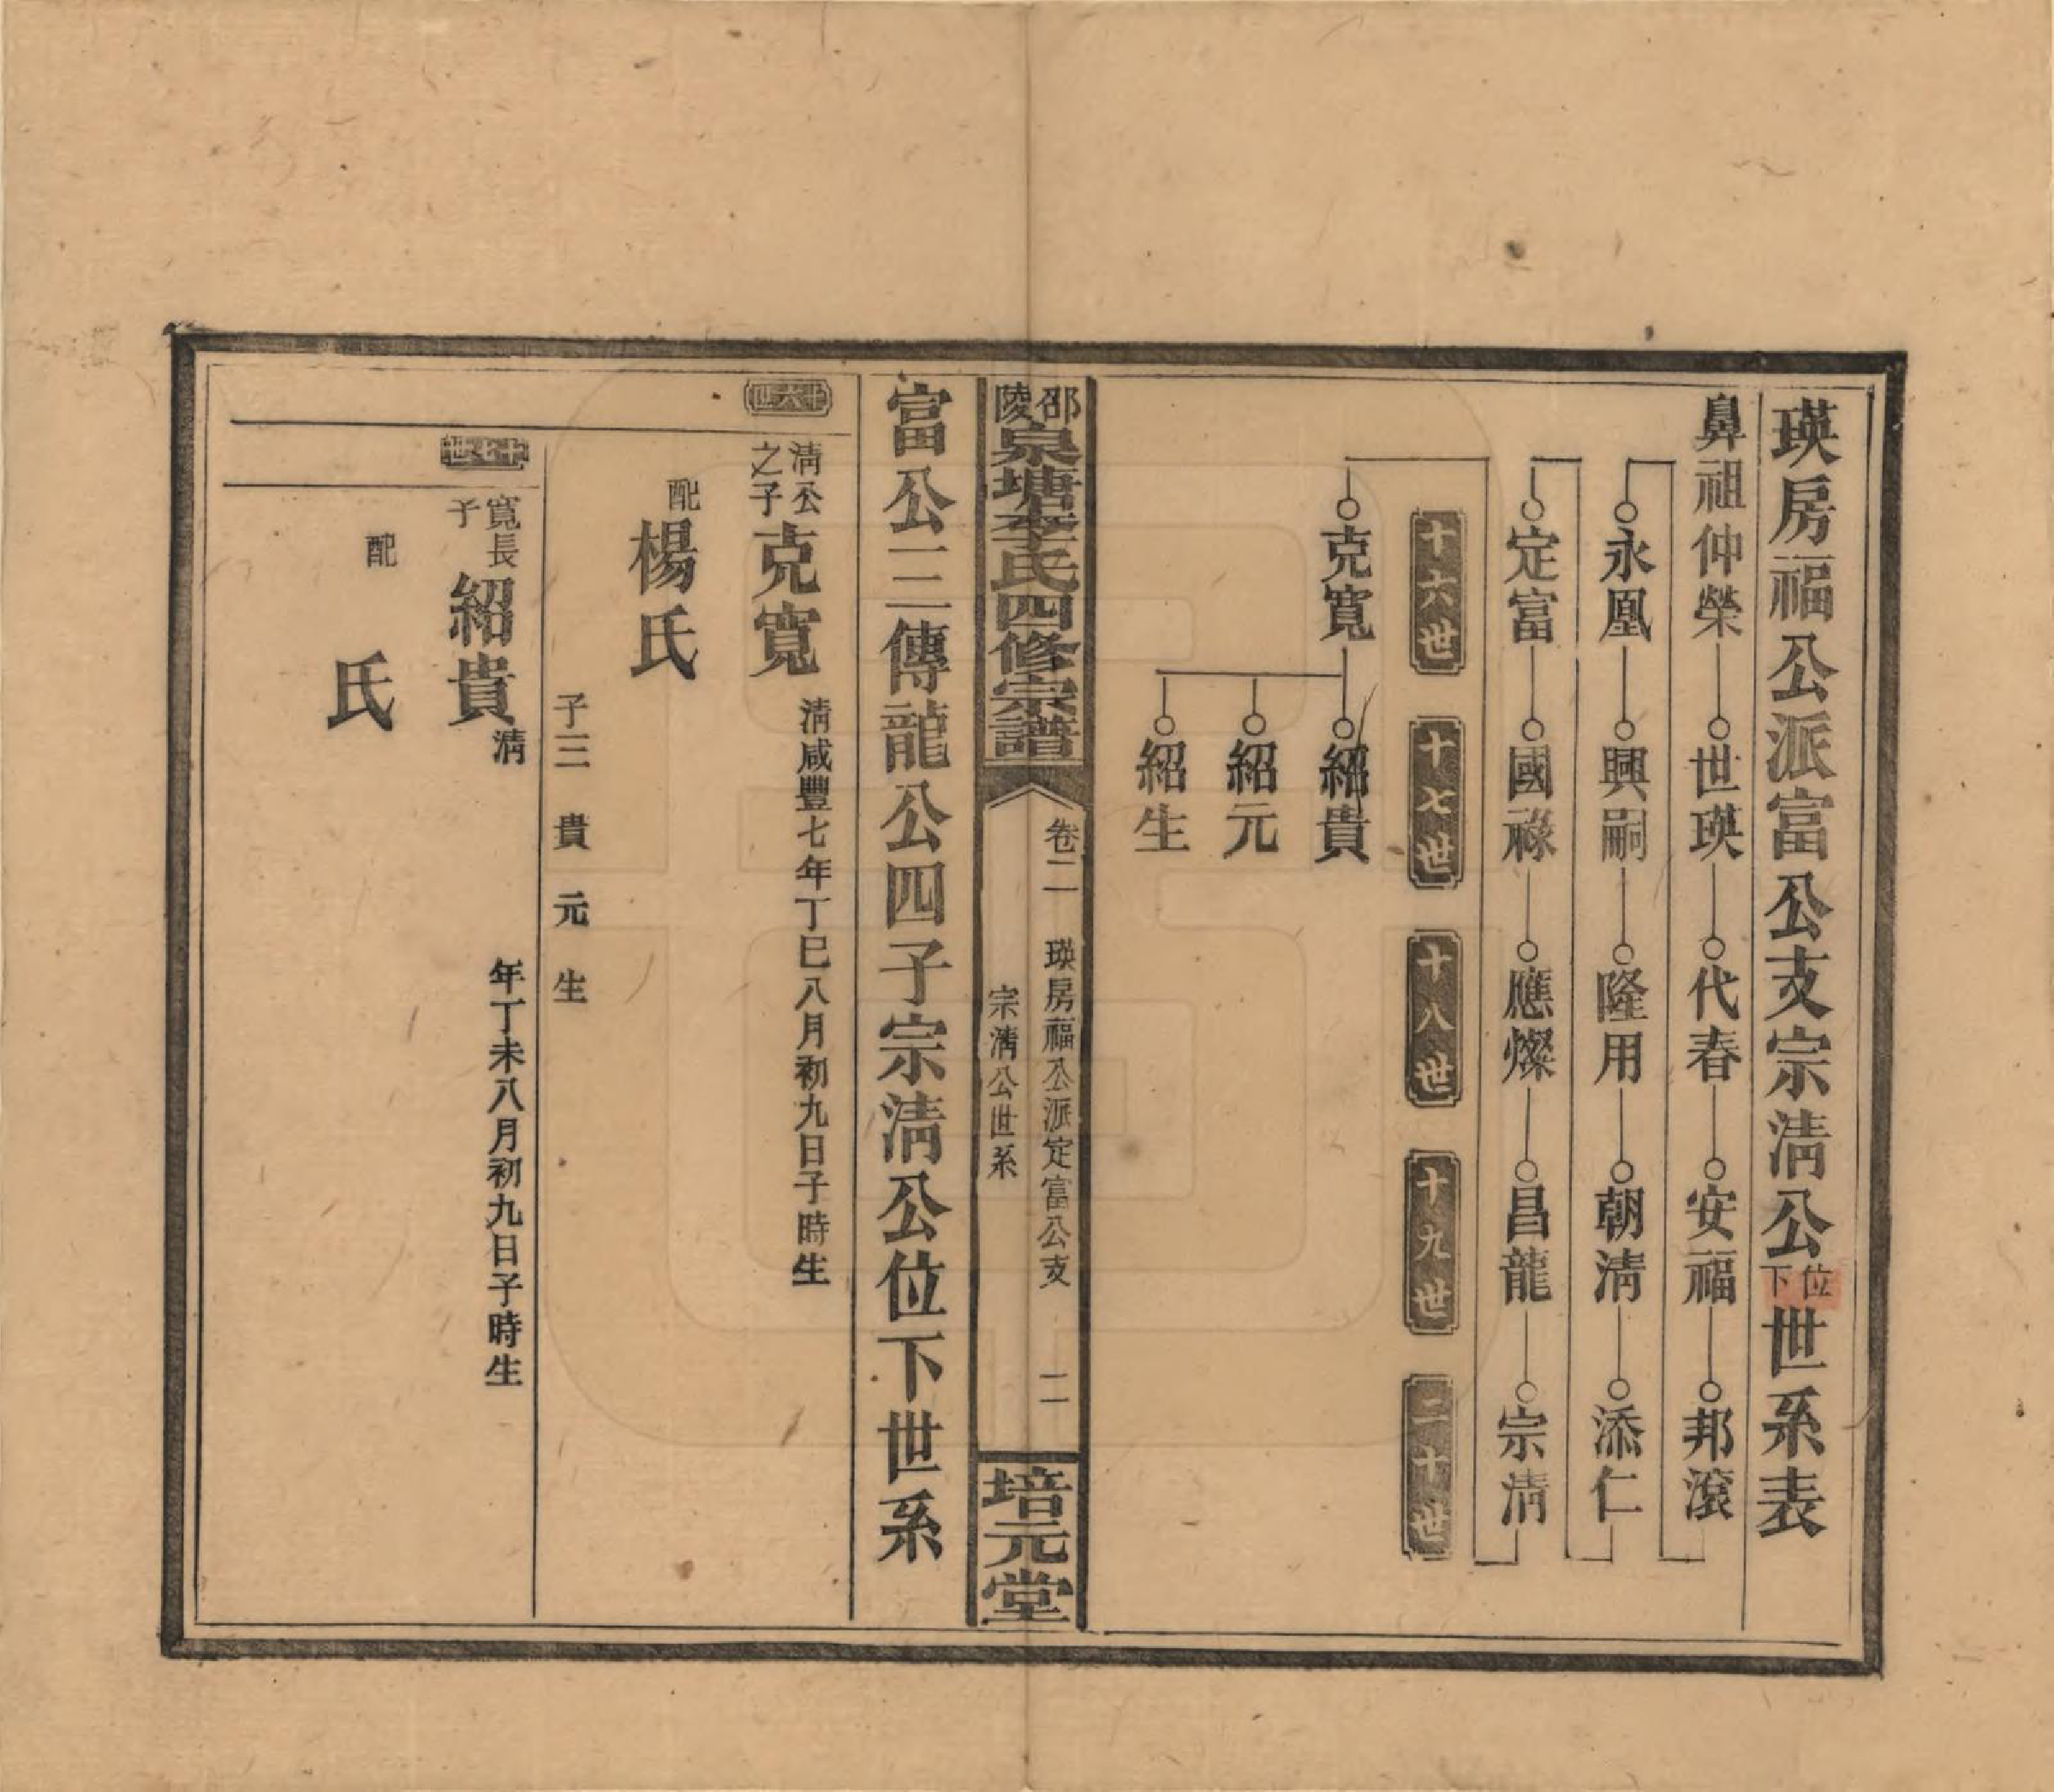 瑛房福公派富公支宗清公位下世系表
鼻祖仲榮 世瑛 代春 安福 邦滾
永凰 興嗣 隆用 朝清 添仁
定富 國祿 應燦 昌龍 宗清
十六世 十七世 十八世 十九世 二十世
克寬 紹貴
紹元
紹生
邵陵泉塘李氏四修宗譜
卷二 瑛房福公派定富公支 二
宗清公世系
培元堂
富公三傳龍公四子宗清公位下世系
十六世
清公之子 克寬 清咸豐七年丁巳八月初九日子時生
配楊氏
子三 貴 元 生
十七世
寬長子 紹貴 清 年丁未八月初九日子時生
配 氏